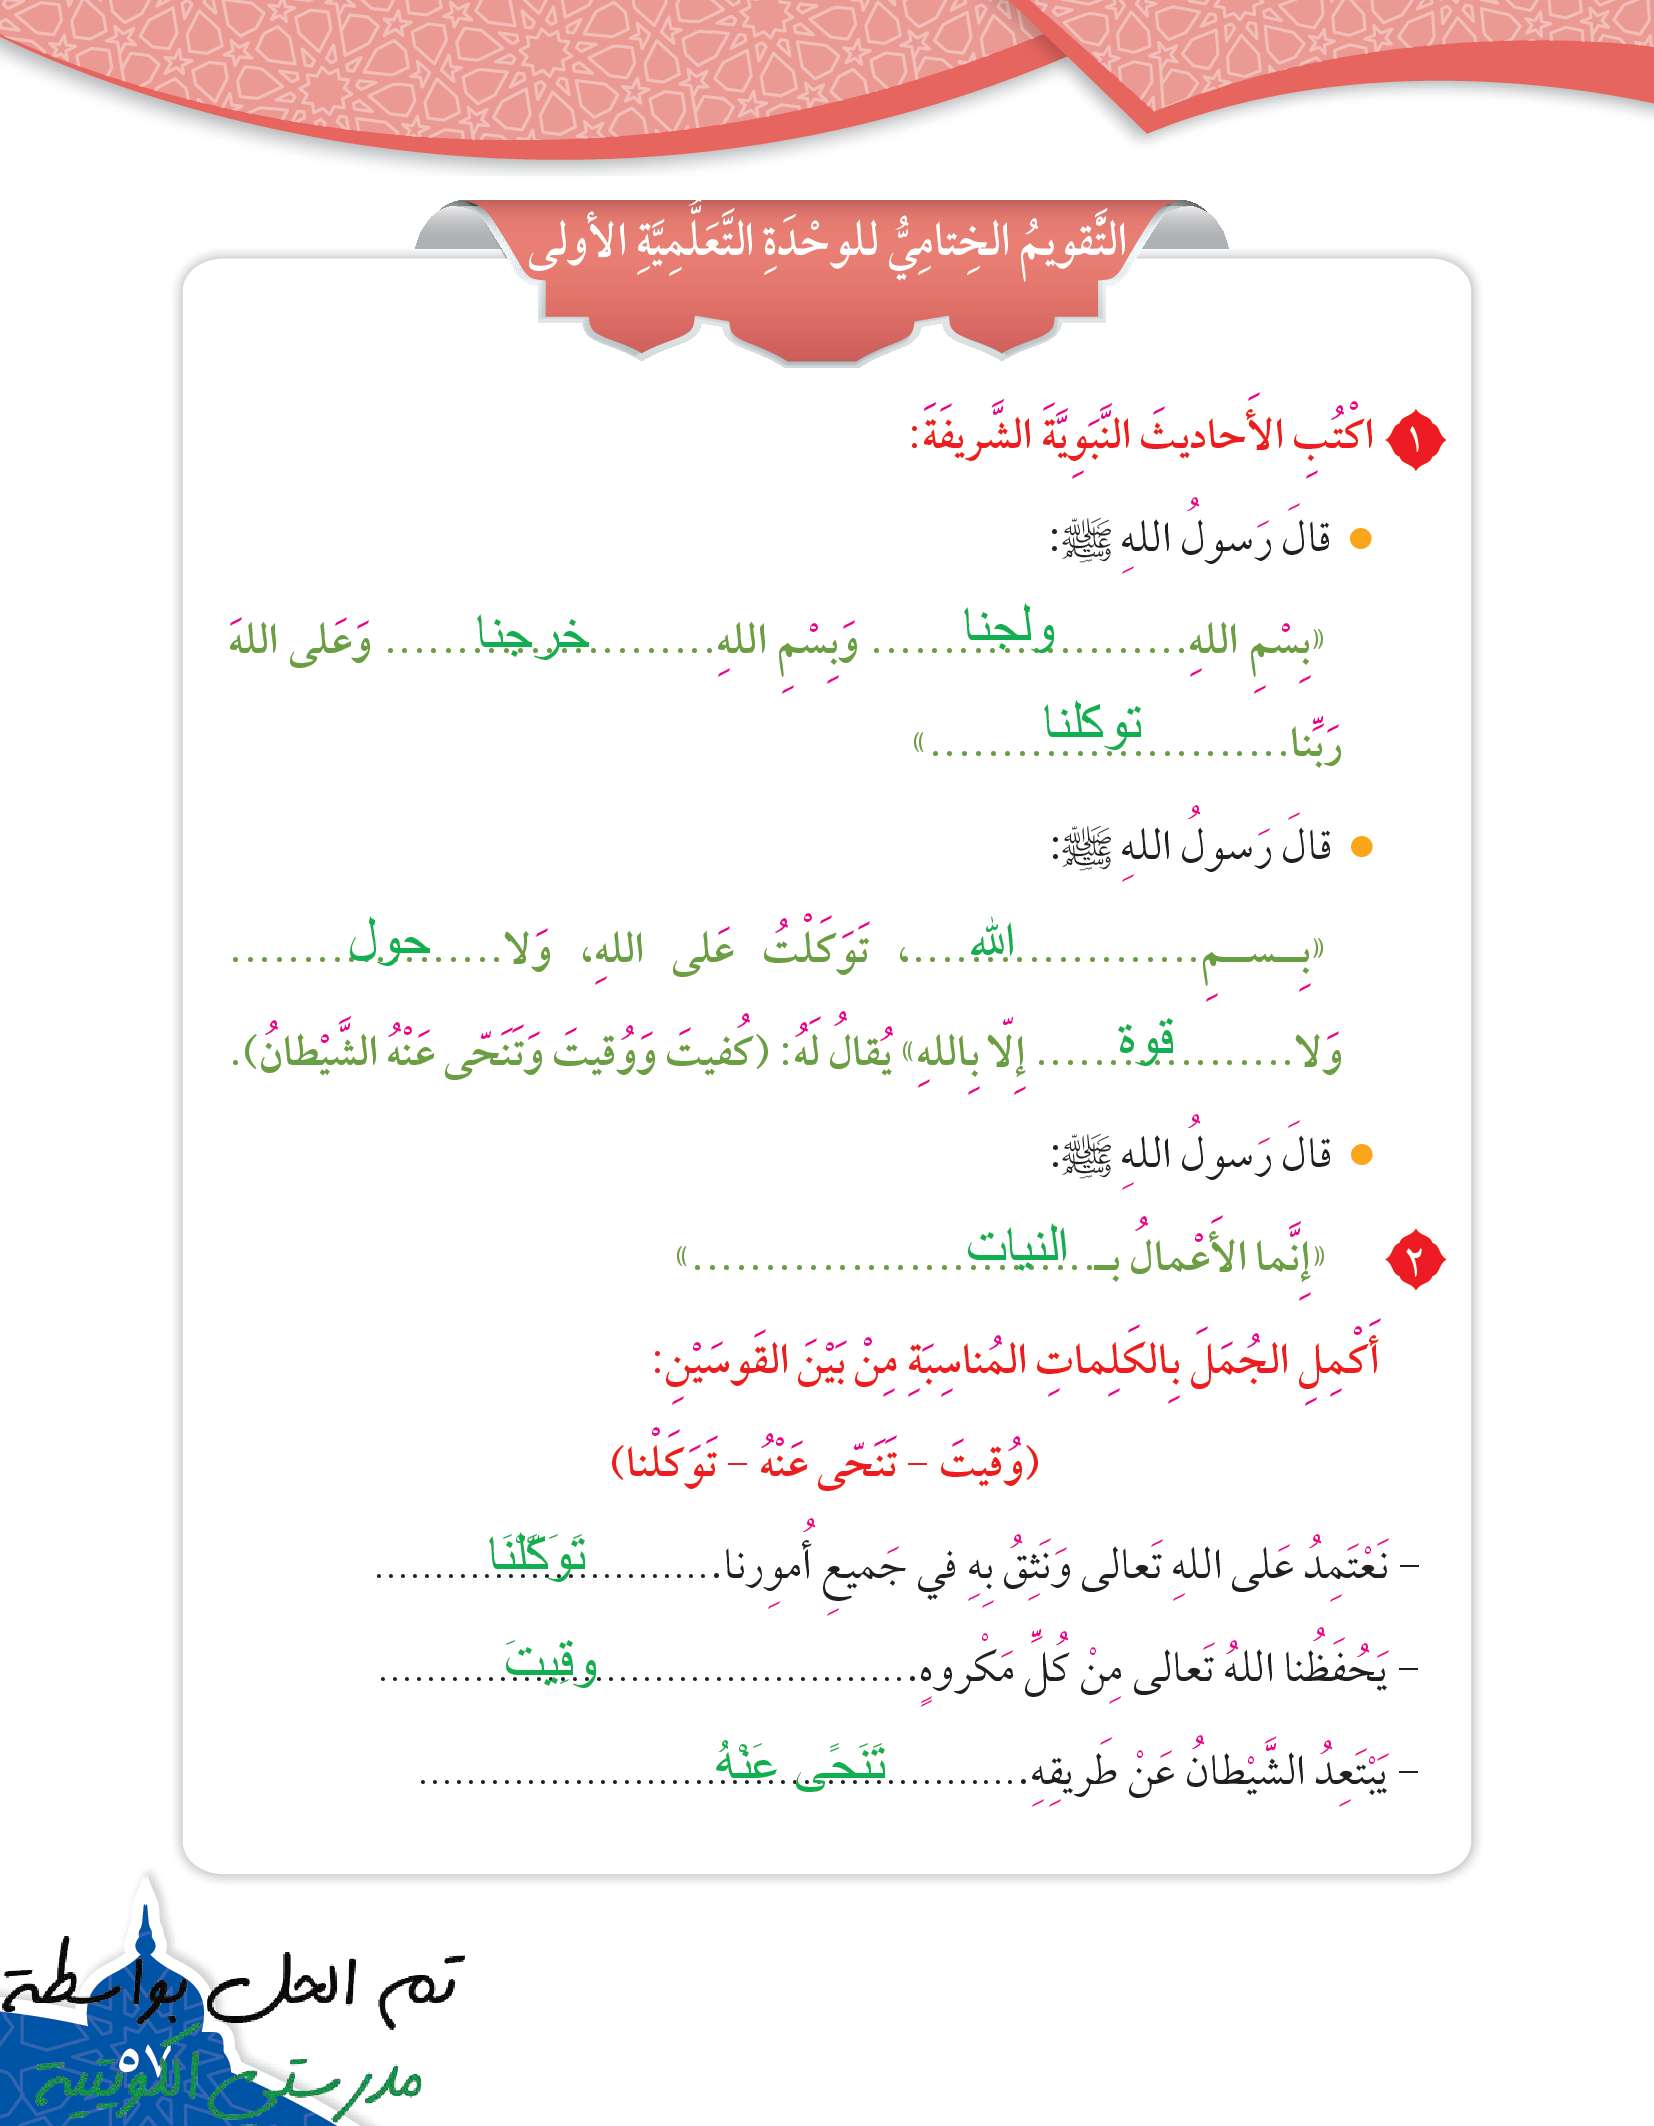 التَّقويمُ الخِتامِيُّ للوحْدَةِ التَّعَلُّمِيَّةِ الأولى
١ اكْتُبِ الأَحاديثَ النَّبَوِيَّةَ الشَّريفَةَ:
● قالَ رَسولُ اللهِ ﷺ:
«بِسْمِ اللهِ...... ولجنا ...... وَبِسْمِ اللهِ...... خرجنا ...... وَعَلى اللهَ
رَبِّنا...... توكلنا ......»
● قالَ رَسولُ اللهِ ﷺ:
«بِـسـمِ...... الله ......، تَوَكَلْتُ عَلى اللهِ، وَلا...... حول ......
وَلا...... قوة ...... إِلّا بِاللهِ» يُقالُ لَهُ: (كُفيتَ وَوُقيتَ وَتَنَحّى عَنْهُ الشَّيْطانُ).
● قالَ رَسولُ اللهِ ﷺ:
٢ «إِنَّما الأَعْمالُ بـ...... النيات ......»
أَكْمِلِ الجُمَلَ بِالكَلِماتِ المُناسِبَةِ مِنْ بَيْنَ القَوسَيْنِ:
(وُقيتَ – تَنَحّى عَنْهُ – تَوَكَلْنا)
– نَعْتَمِدُ عَلى اللهِ تَعالى وَنَثِقُ بِهِ في جَميعِ أُمورِنا...... تَوَكَّلْنَا ......
– يَحُفَظُنا اللهُ تَعالى مِنْ كُلِّ مَكْروهٍ...... وقِيتَ ......
– يَبْتَعِدُ الشَّيْطانُ عَنْ طَريقِهِ...... تَنَحًى عَنْهُ ......
تم الحل بواسطة
مدرستي الكويتية
٥٧